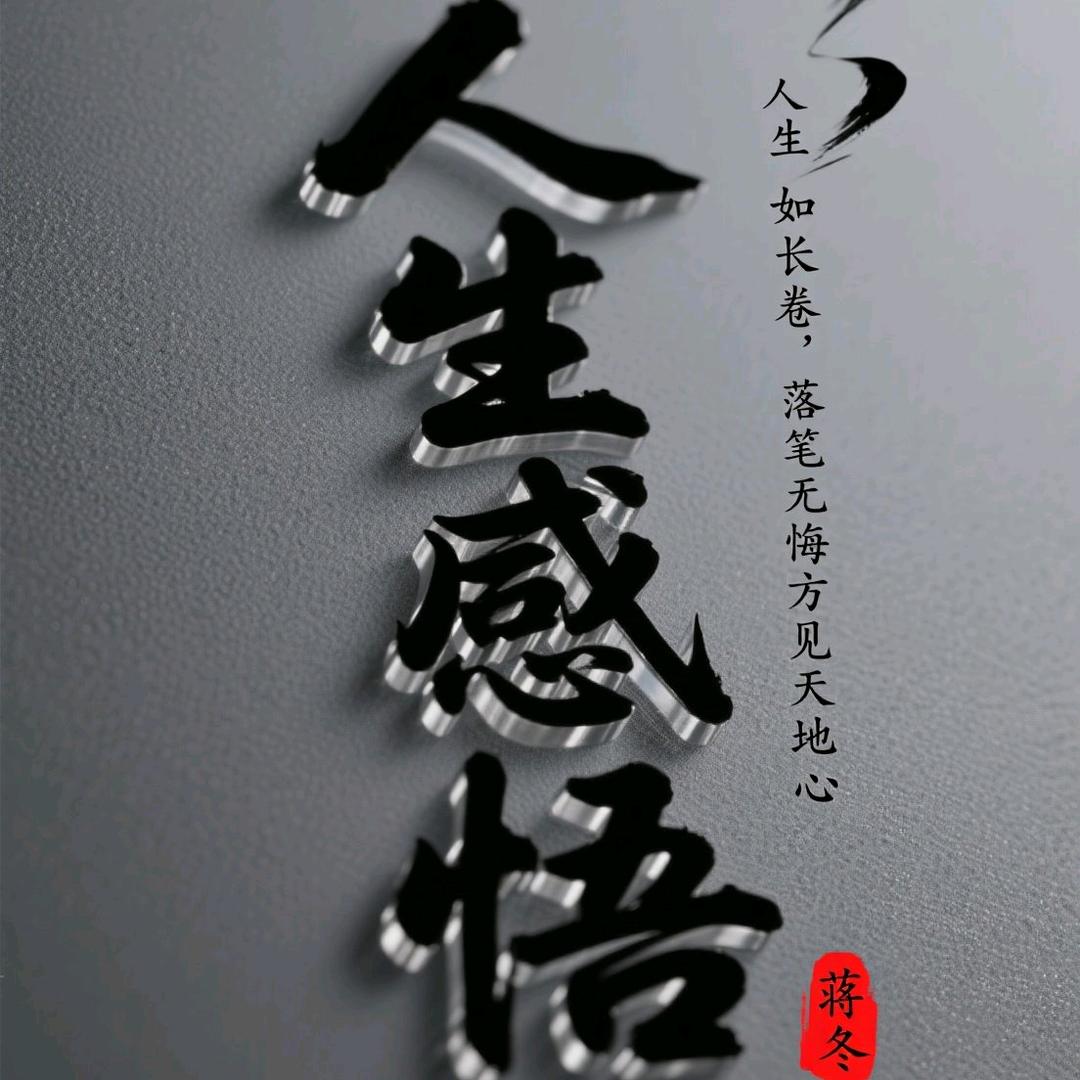 人生感悟
人生如长卷，落笔无悔方见天地心
蒋冬